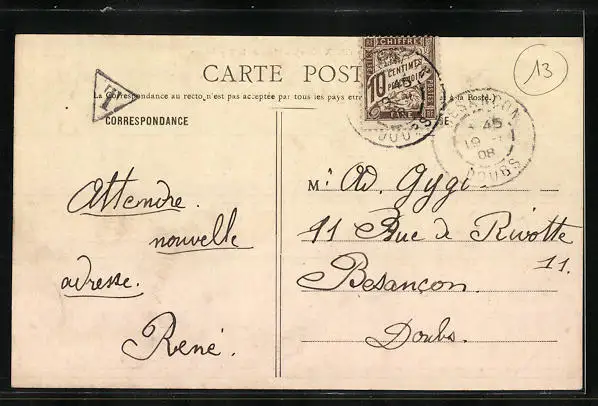 CARTE POST
La Correspondance au recto n'est pas acceptée par tous les pays étr
à la Poste.)
T
13
CHIFFRE
10 CENTIMES
A PERCEVOIR
TAXE
DOUBS
BESANÇON
45
19
08
DOUBS
CORRESPONDANCE
Attendre
nouvelle
adresse.
René.
M.r Ad. Gygi
11 Rue de Rivotte
11.
Besançon.
Doubs.